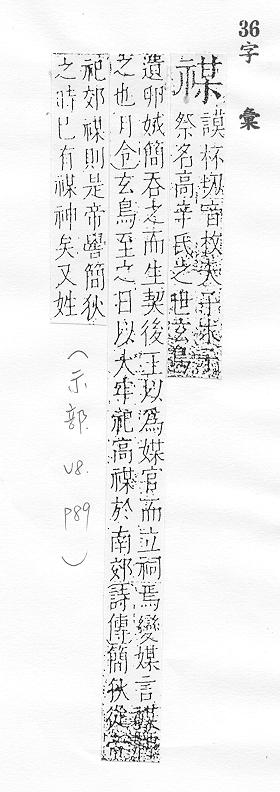 36字 彙
禖
謨杯切音枚天子求子
祭名高辛氏之世玄鳥
遺卵娀簡吞之而生契後王以爲媒官而立祠焉變媒言禖神
之也月令玄鳥至之日以大牢祀高禖於南郊詩傳簡狄從帝
祀郊禖則是帝嚳簡狄
之時已有禖神矣又姓
(示部. V8. P89)